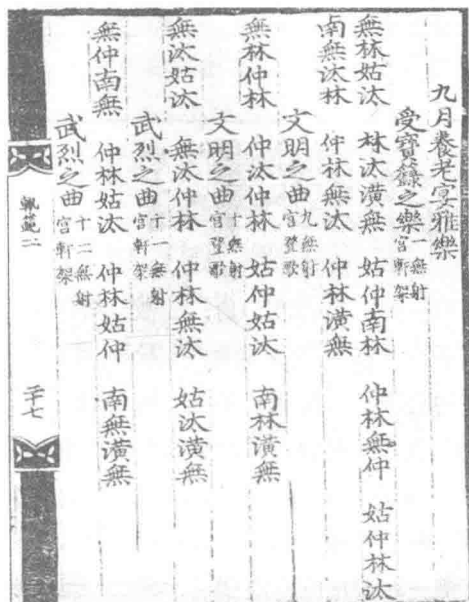 九月養老宴雅樂
受寶籙之樂 一無射宮軒架
無林姑汰 林汰潢無 姑仲南林 仲林無仲 姑仲林汰
南無汰林 仲林無汰 仲林潢無
文明之曲 九無射宮登歌
無林仲林 仲汰仲林 姑仲姑汰 南林潢無
文明之曲 十無射宮登歌
無汰姑汰 無汰仲林 仲林無汰 姑汰潢無
武烈之曲 十一無射宮軒架
無仲南無 仲林姑汰 仲林姑仲 南無潢無
武烈之曲 十二無射宮軒架
軌範二 二十七